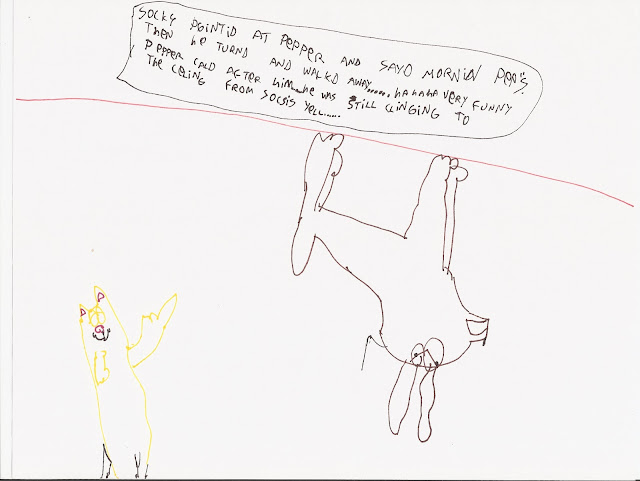 SOCKY POINTID AT PEPPER AND SAYD MORNIN PEP'S.
THEN HE TURND AND WALKD AWAY...... HA HA HA VERY FUNNY
PEPPER CALD AFTER HIM...HE WAS STILL CLINGING TO
THE CELING FROM SOCSIS YELL.....